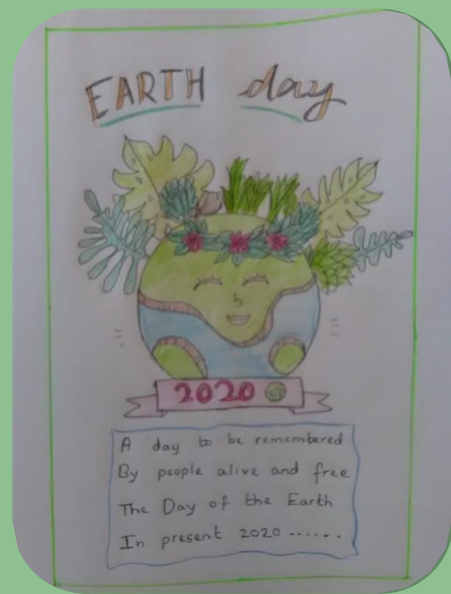 EARTH day
2020
A day to be remembered
By people alive and free
The Day of the Earth
In present 2020 ......